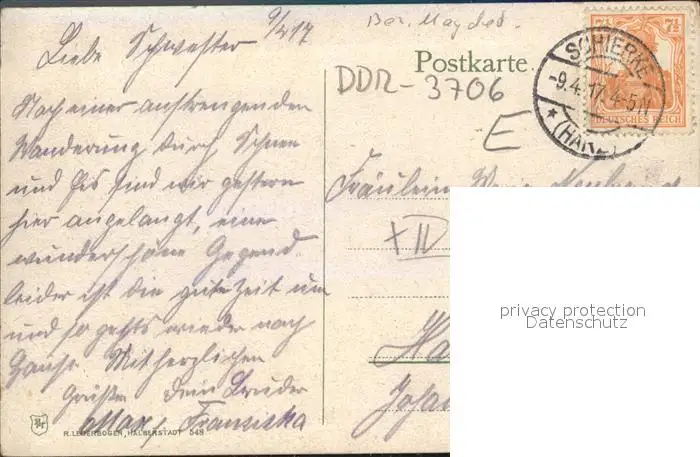 9/4 17
Liebe Schwester
Nach einer anstrengenden
Wanderung durch Schnee
und Eis sind wir gestern
hier angelangt, eine
wunderschöne Gegend.
leider ist die gute Zeit um
und so gehts wieder nach
Hause Mit herzlichen
Grüßen Dein Bruder
Max, Franziska
R. LEDERBOGEN, HALBERSTADT 548
Postkarte.
DDR-3706
E
7½ 7½
DEUTSCHES REICH
SCHIERKE
-9.4.17. 4-5N
* (HARZ)
Fräulein
XII
privacy protection
Datenschutz